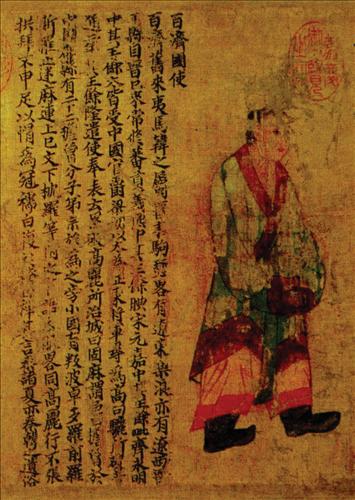 百濟國使
百濟舊來夷馬韓之屬晉末駒驪略有遼東樂浪亦有遼西晉
平縣自晉已來常修蕃貢義熙中其王餘腆宋元嘉中其王餘毗齊永明
中其王餘太皆受中國官爵梁初以太為征東將軍尋為高句驪所破
二年其王餘隆遣使奉表云累破高麗所治城曰固麻謂邑曰檐魯於
中國郡縣有二十二檐魯分子弟宗族為之旁小國有叛波卓多羅前羅
斯羅止迷麻連上巳文下枕羅等附之言語衣服略同高麗行不張
拱拜不申足以帽為冠襦曰複衫袴曰褌其言參諸夏亦秦韓之遺俗